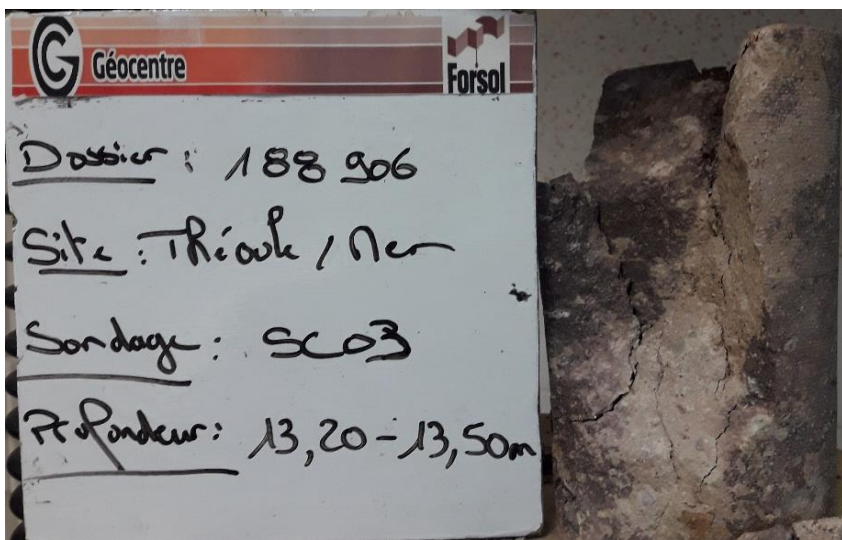 Géocentre
Forsol
Dossier : 188 906
Site : Théoule / Mer
Sondage : SC03
Profondeur : 13,20 - 13,50m